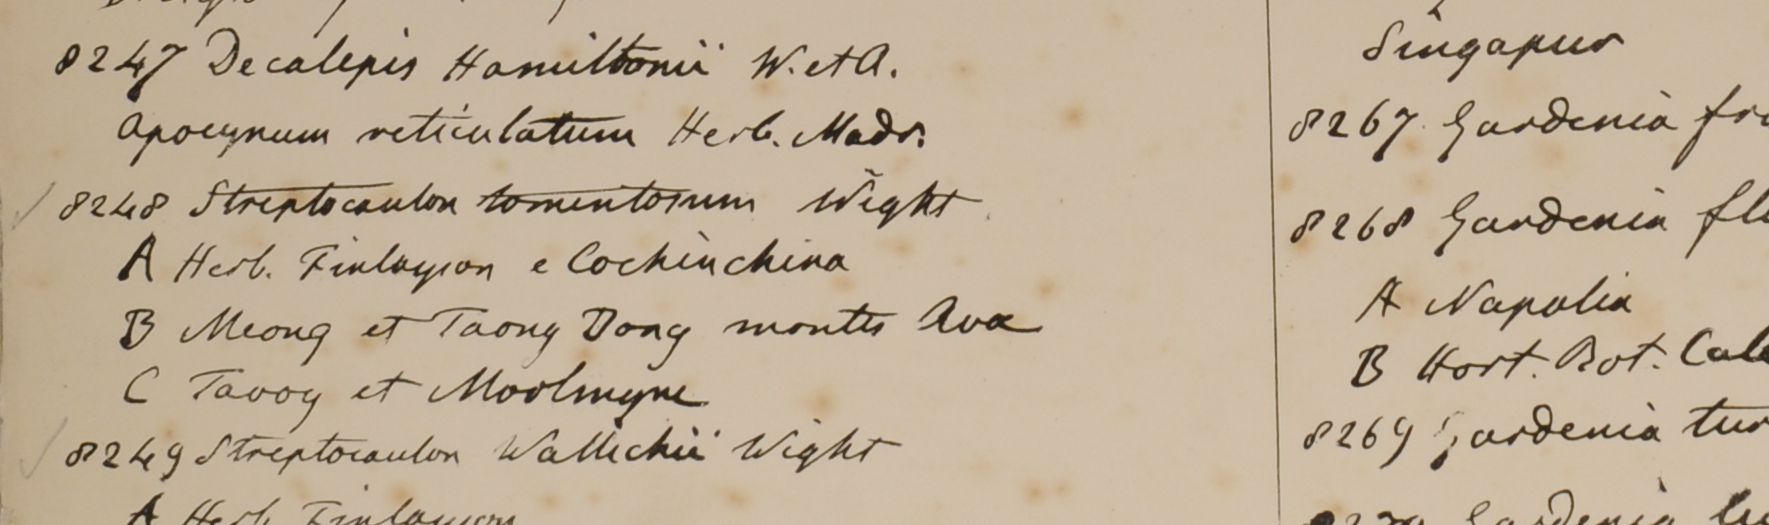 8247 Decalepis Hamiltonii W. et A.
Apocynum reticulatum Herb. Madr.
8248 Streptocaulon tomentosum Wight
A Herb. Finlayson e Cochinchina
B Meong et Taong Dong montes Ava
C Tavoy et Moolmyne
8249 Streptocaulon Wallichii Wight
A Herb. Finlayson
Singapur
8267 Gardenia
8268 Gardenia
A Napalia
B Hort. Bot.
8269 Gardenia
Gardenia